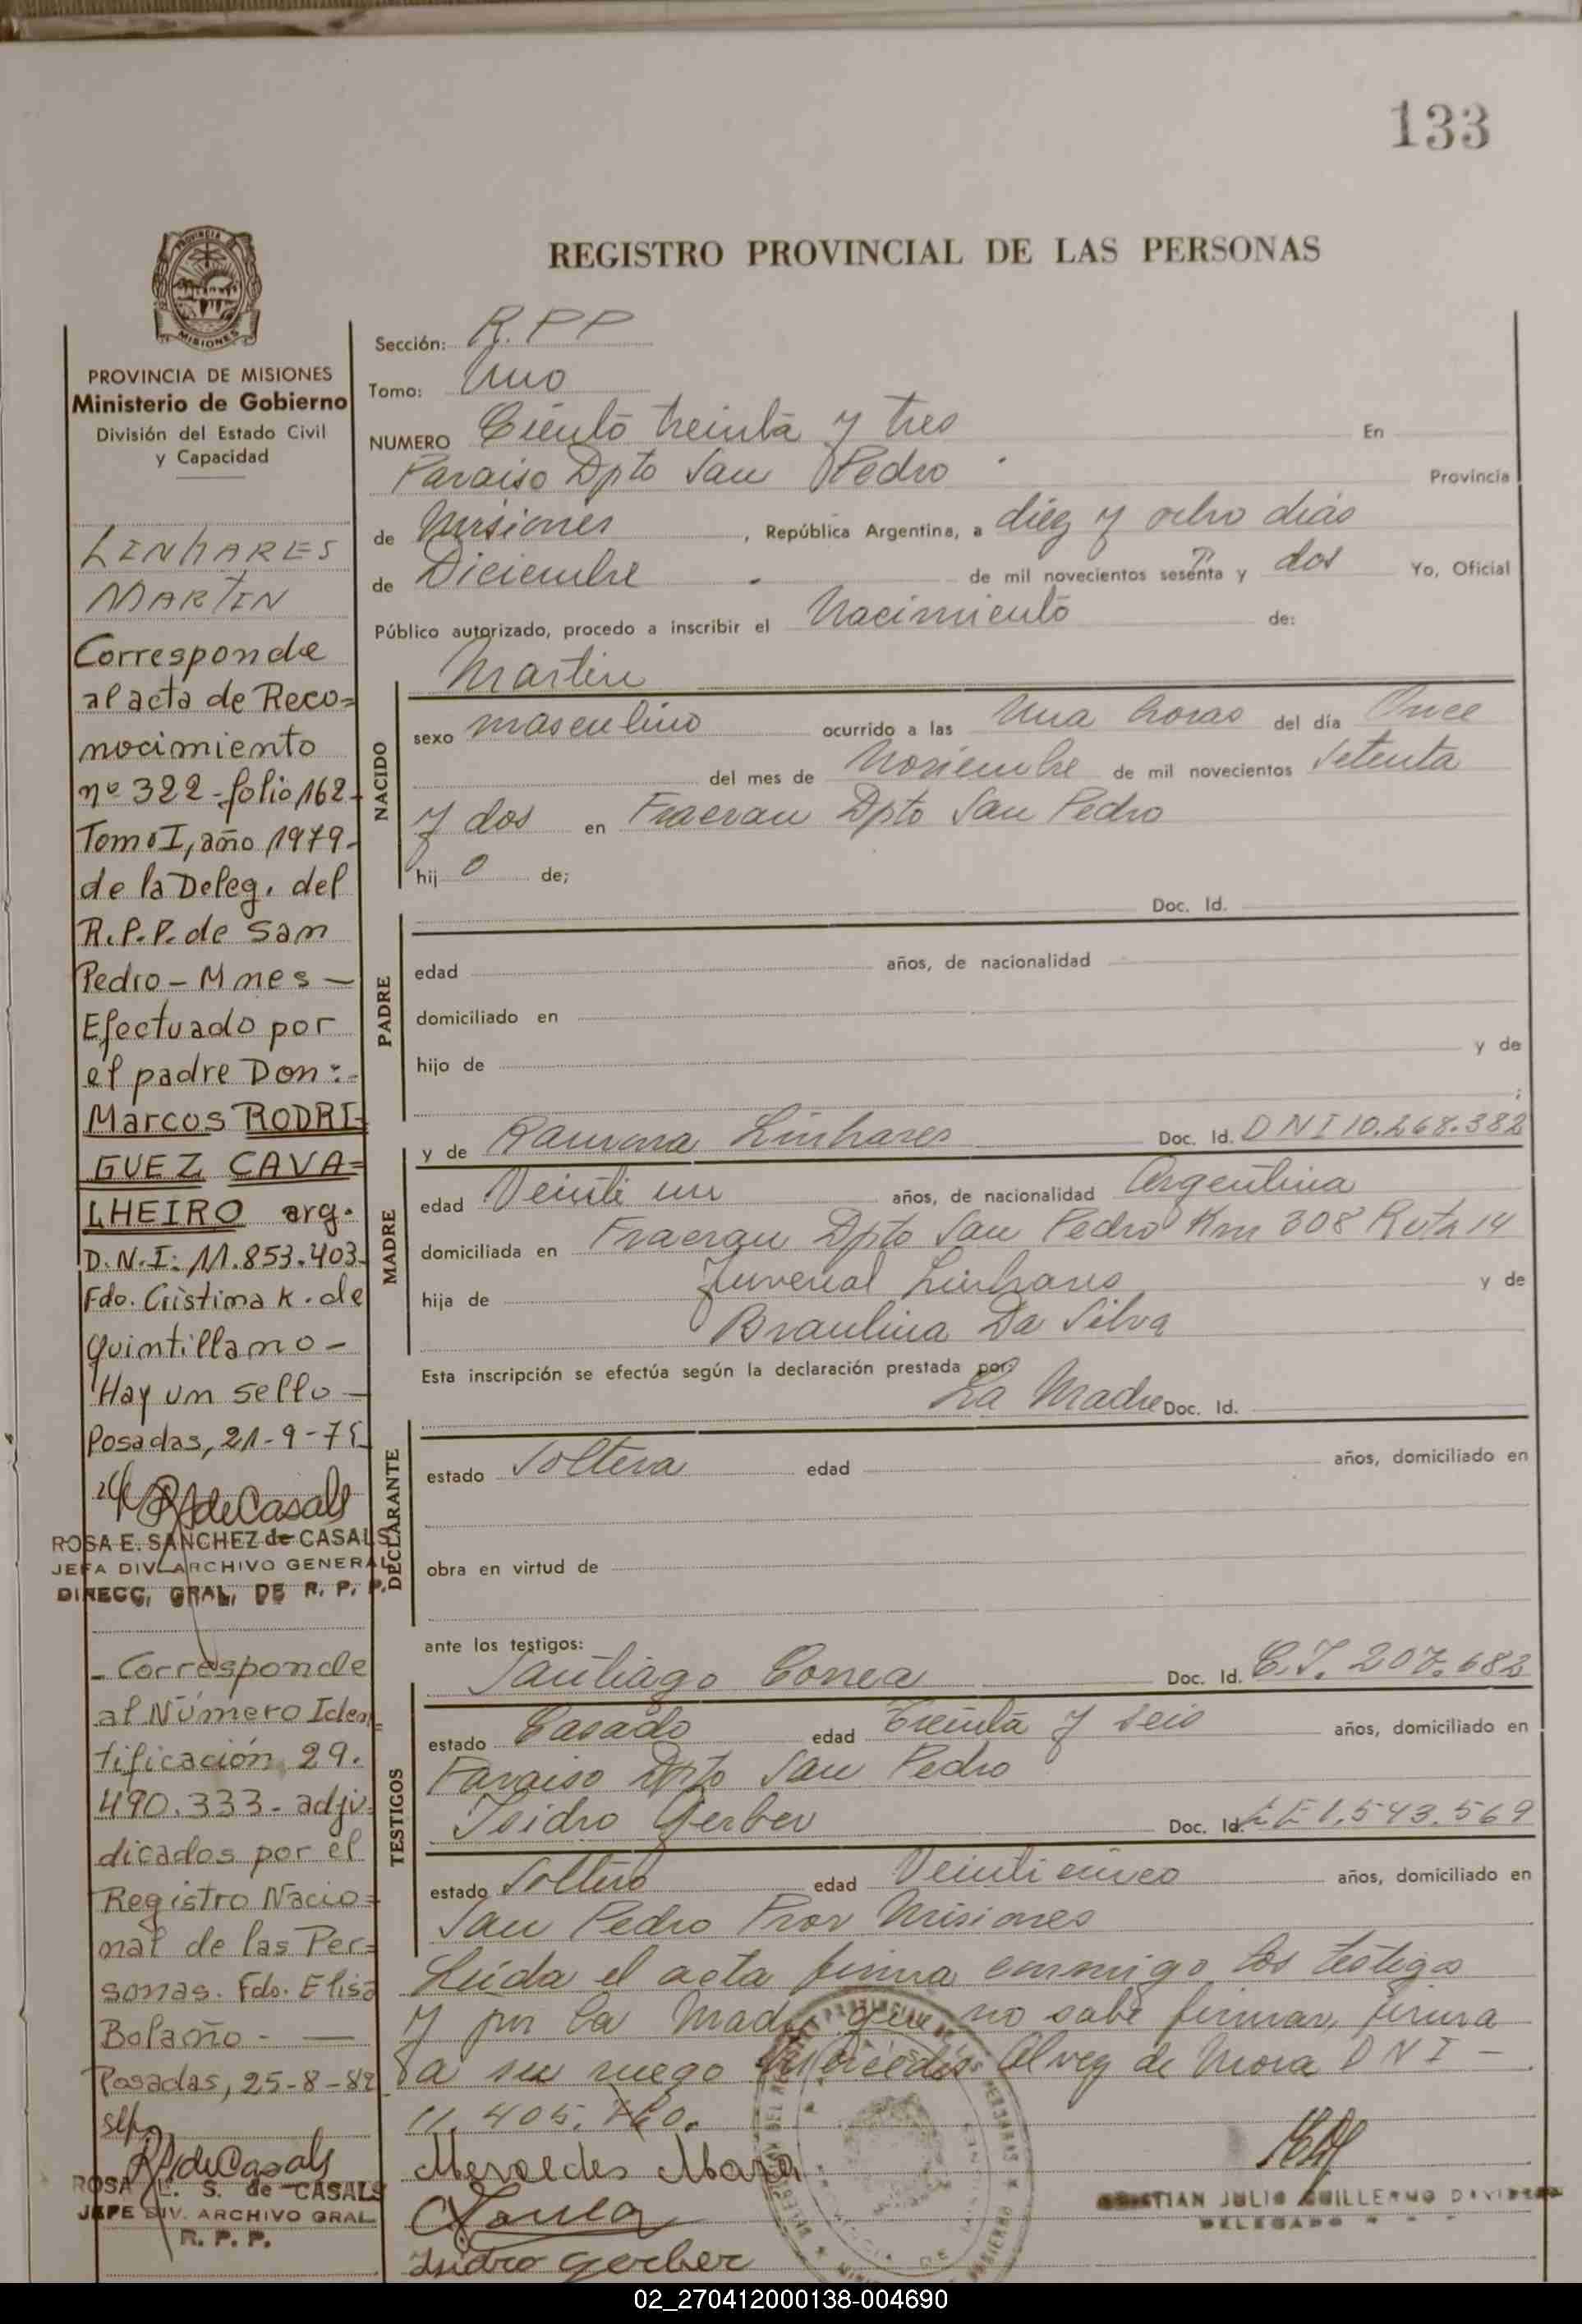 133
REGISTRO PROVINCIAL DE LAS PERSONAS
MISIONES
PROVINCIA DE MISIONES
Ministerio de Gobierno
División del Estado Civil
y Capacidad
LINHARES
MARTIN
Corresponde
al acta de Reco=
nocimiento
nº 322 - folio 162-
Tomo I, año 1979-
de la Deleg. del
R.P.P. de San
Pedro - Mnes -
Efectuado por
el padre Don:-
Marcos RODRI-
GUEZ CAVA=
LHEIRO arg.
D.N.I: 11.853.403-
Fdo. Cristina K. de
Quintillano -
Hay un sello -
Posadas, 21-9-7
RSdeCasals
ROSA E. SANCHEZ de CASALS
JEFA DIV. ARCHIVO GENERAL
DIRECC. GRAL. DE R. P. P.
- Corresponde
al Número Iden=
tificación 29.
490.333- adju=
dicados por el
Registro Nacio=
nal de las Per=
sonas. Fdo. Elisa
Bolaño - —
Posadas, 25-8-82
RSdeCasals
ROSA E. S. de CASALS
JEFE DIV. ARCHIVO GRAL
R. P. P.
Sección: R.P.P
Tomo: Uno
NUMERO Ciento treinta y tres En
Paraiso Dpto San Pedro Provincia
de Misiones, República Argentina, a diez y ocho dias
de Diciembre de mil novecientos sesenta y dos Yo, Oficial
Público autorizado, procedo a inscribir el Nacimiento de:
Martin
NACIDO
sexo masculino ocurrido a las Una horas del día Once
del mes de Noviembre de mil novecientos setenta
y dos en Fracran Dpto San Pedro
hij o de;
PADRE
Doc. Id.
edad años, de nacionalidad
domiciliado en
hijo de y de
;
MADRE
y de Ramona Linhares Doc. Id. DNI 10.268.382
edad Veinti un años, de nacionalidad Argentina
domiciliada en Fracran Dpto San Pedro Km 308 Ruta 14
hija de Juvenal Linhares y de
Braulina Da Silva
Esta inscripción se efectúa según la declaración prestada por:
La Madre Doc. Id.
DECLARANTE
estado Soltera edad años, domiciliado en
obra en virtud de
ante los testigos:
TESTIGOS
Santiago Correa Doc. Id. C.I. 207.682
estado Casado edad Treinta y seis años, domiciliado en
Paraiso Dpto San Pedro
Isidro Gerber Doc. Id. L E 1.543.569
estado Soltero edad Veinti cinco años, domiciliado en
San Pedro Prov Misiones
Leida el acta firma conmigo los testigos
y por la Madre que no sabe firmar, firma
a su ruego Mercedes Alvez de Mora D N I -
11.405.
Mercedes Mora
Isidro Gerber
CRISTIAN JULIO GUILLERMO
DELEGADO
02_270412000138-004690